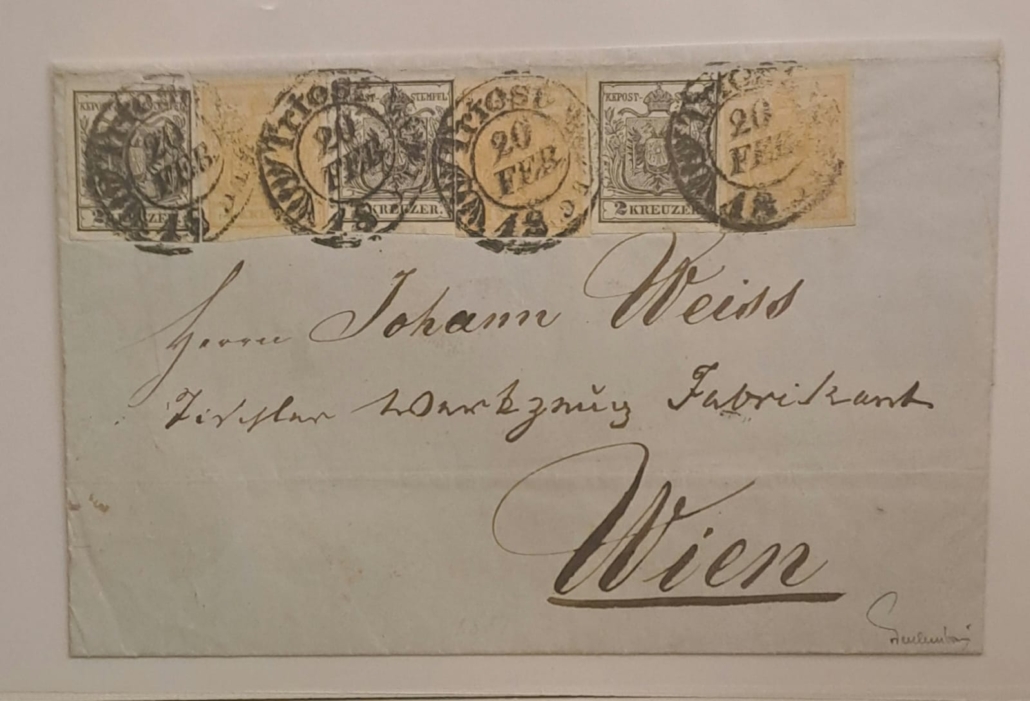 KKPOST-STEMPEL
Triest
20
FEB.
18
2 KREUZER.
Triest
20
FEB.
18
KREUZER.
STEMPEL
Triest
20
FEB.
18
KKPOST-STEMPEL
2 KREUZER.
Triest
20
FEB.
18
Herrn Johann Weiss
Tischler Werkzeug Fabrikant
Wien